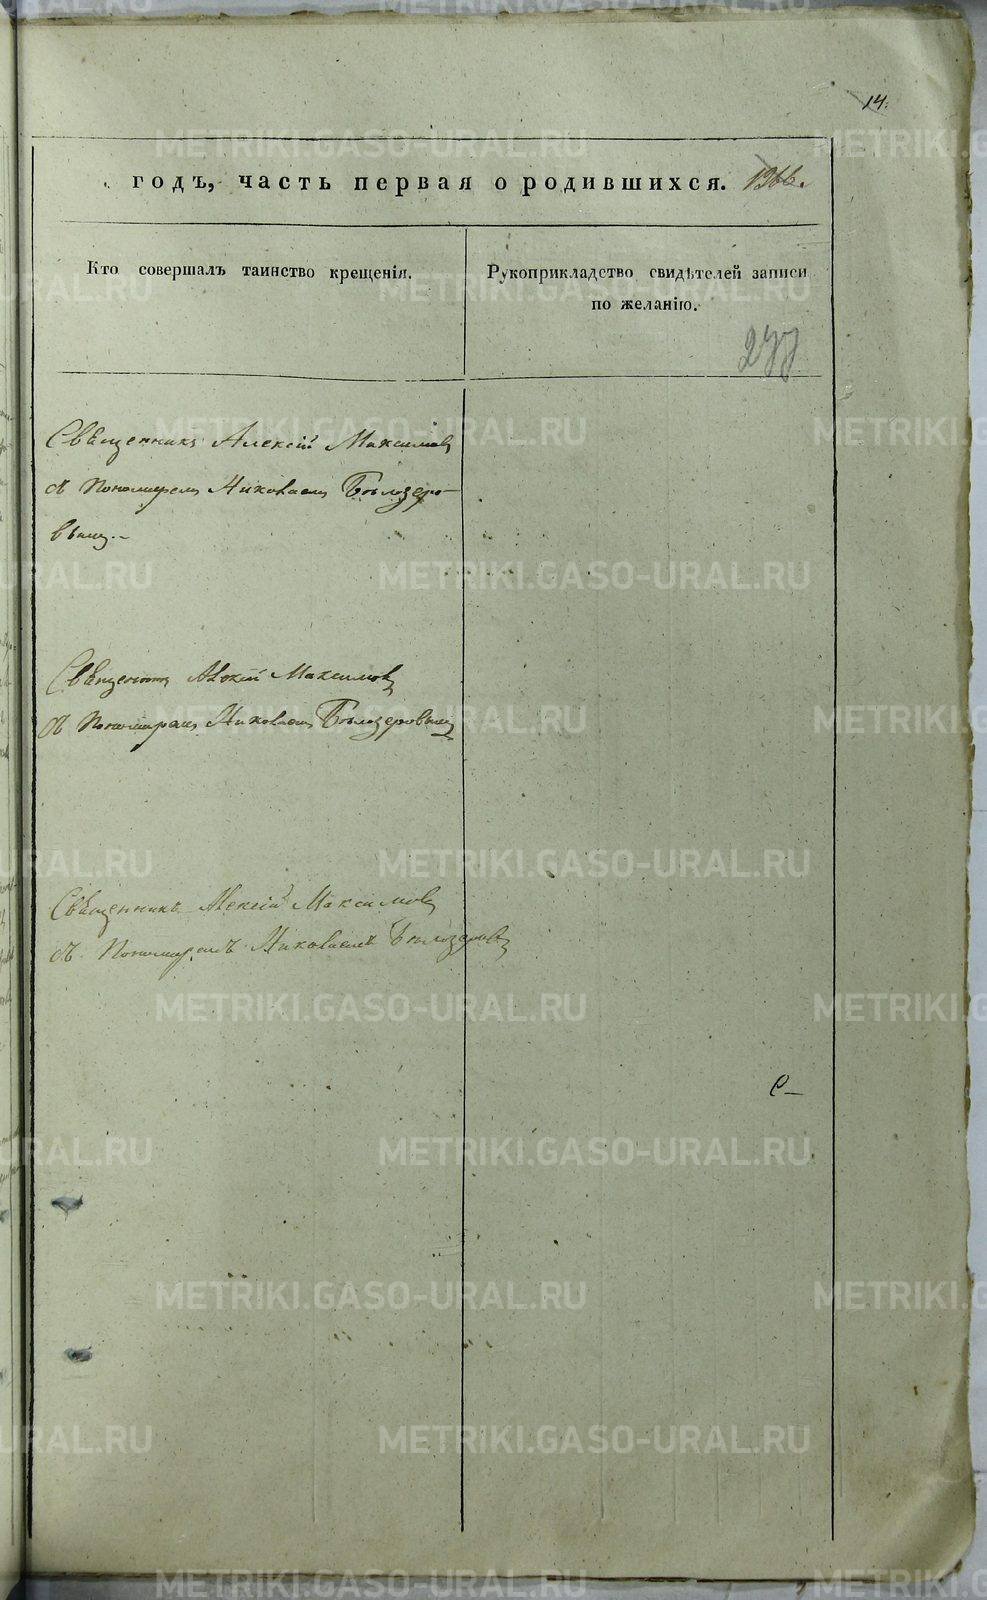 14.
годъ, часть первая о родившихся.
Кто совершалъ таинство крещенія.
Рукоприкладство свидѣтелей записи
по желанію.
277
Священникъ Алексій Максимовъ
съ Пономаремъ Николаемъ Бѣлозеро-
вымъ.-
Священникъ Алексій Максимовъ
съ Пономаремъ Николаемъ Бѣлозеровымъ
Священникъ Алексій Максимовъ
съ Пономаремъ Николаемъ Бѣлозеровъ
METRIKI.GASO-URAL.RU